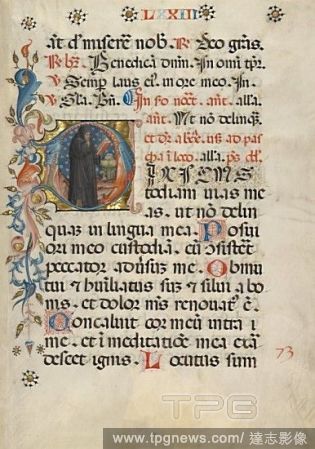 LXXIII
at d' miserere nob. R Deo gras.
R br. Benedica dnm. In omi tpr.
V Semper laus ei. in ore meo. In.
V Gla. In fo noct. ant. alla.
ant. Ut no delinq
et dr a bre. usq ad pas
cha i loco. alla. ps.
DIXI CUS
todiam uias me
as. ut no delin
quaz in lingua mea. Posui
ori meo custodia. cu sisteret
peccator adusuz me. Obmu
tui & humiliatus suz & silui a bo
nis. et dolor mis renouat e.
Concaluit cor meu intra i
me. et i meditatioe mea exa
descet ignis. Locutus sum
73
TPG
www.tpgnews.com/達志影像